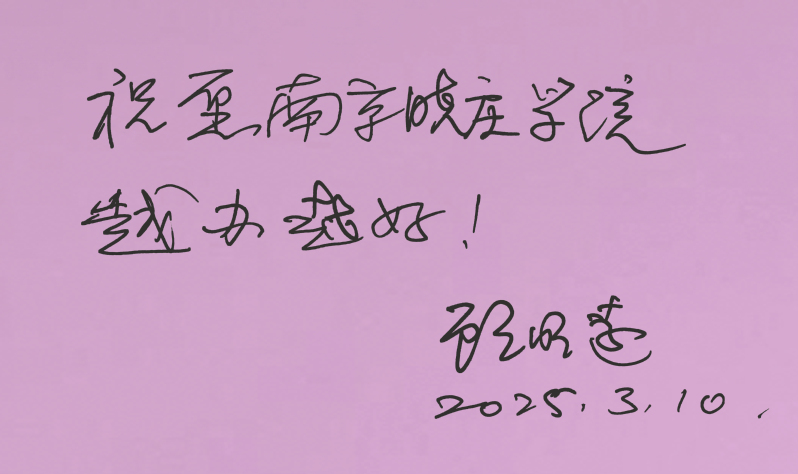 祝愿南京晓庄学院
越办越好!
顾明远
2025.3.10.